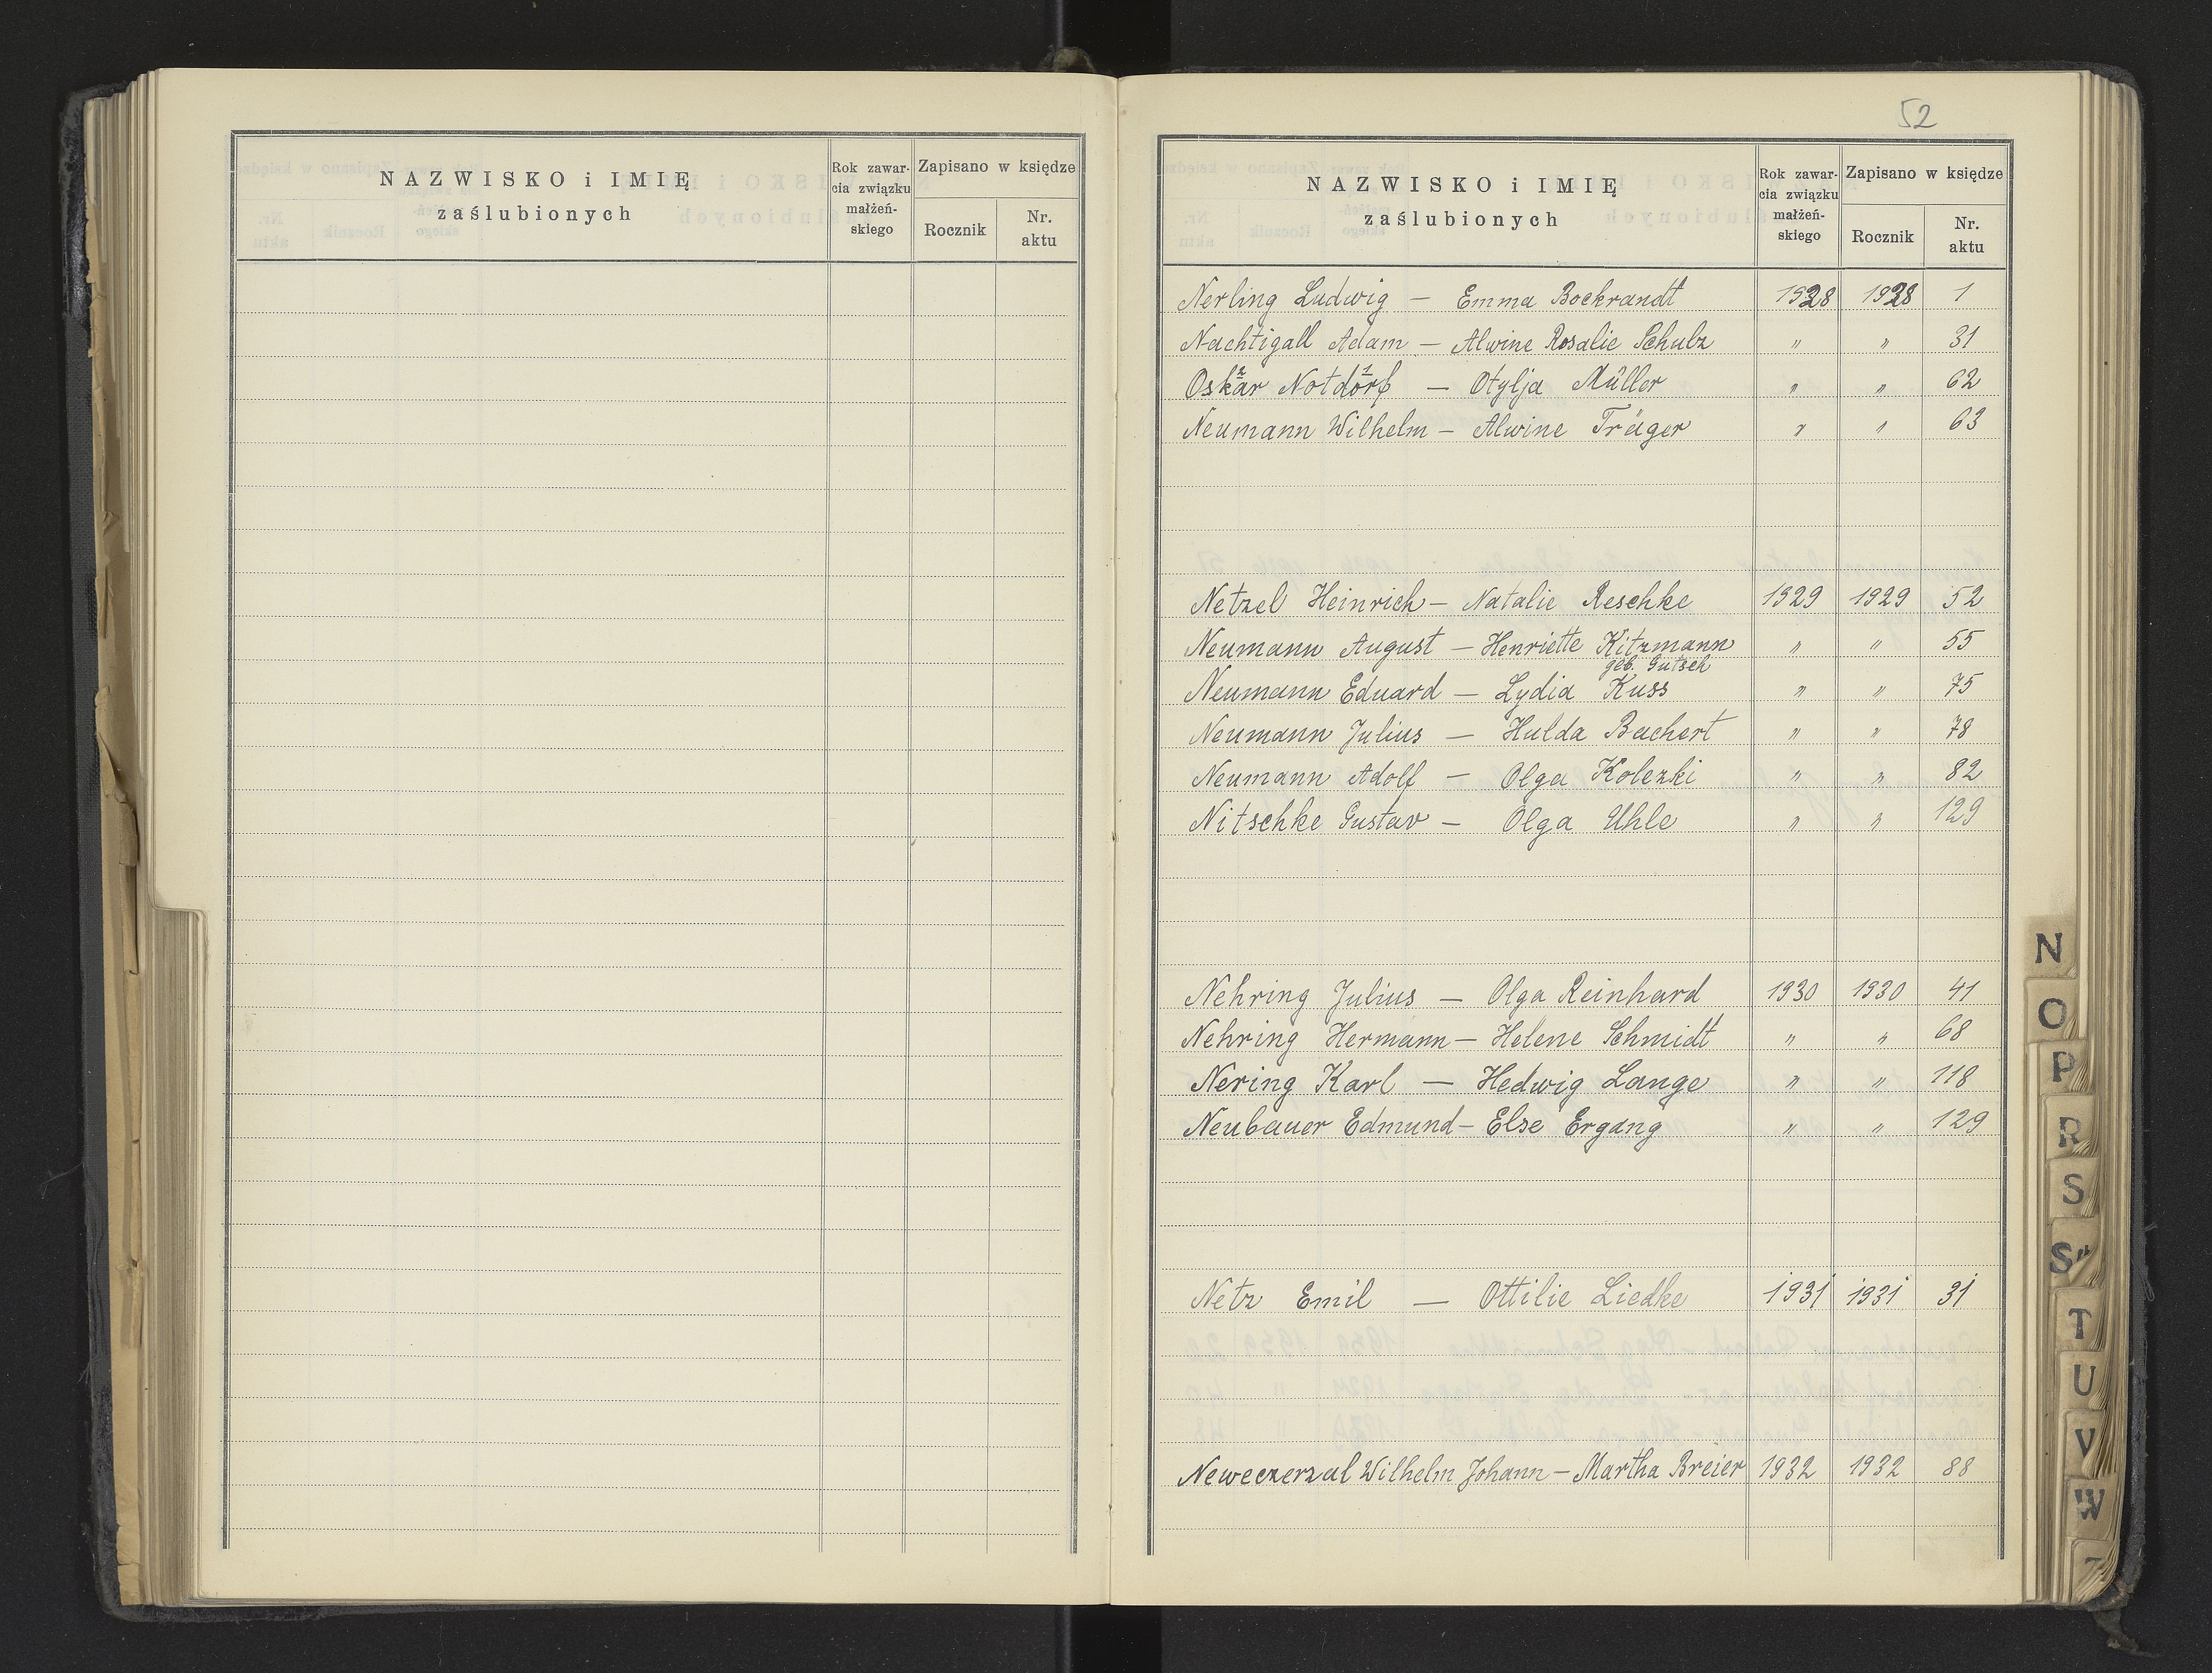 NAZWISKO i IMIĘ
zaślubionych
Rok zawar-
cia związku
małżeń-
skiego
Zapisano w księdze
Rocznik
Nr.
aktu
52
NAZWISKO i IMIĘ
zaślubionych
Rok zawar-
cia związku
małżeń-
skiego
Zapisano w księdze
Rocznik
Nr.
aktu
Nerling Ludwig — Emma Bockrandt 1928 1928 1
Nachtigall Adam — Alwine Rosalie Schulz " " 31
2 1
Oskar Notdorf — Otylja Müller " " 62
Neumann Wilhelm — Alwine Träger " " 63
Netzel Heinrich — Natalie Reschke 1929 1929 52
Neumann August — Henriette Kitzmann " " 55
geb. Gutsch
Neumann Eduard — Lydia Kuss " " 75
Neumann Julius — Hulda Bachert " " 78
Neumann Adolf — Olga Kolezki " " 82
Nitschke Gustav — Olga Uhle " " 129
Nehring Julius — Olga Reinhard 1930 1930 41
Nehring Hermann — Helene Schmidt " " 68
Nering Karl — Hedwig Lange " " 118
Neubauer Edmund — Else Ergang " " 129
Netz Emil — Ottilie Liedke 1931 1931 31
Neweczerzal Wilhelm Johann — Martha Breier 1932 1932 88
N
O
P
R
S
S"
T
U
V
W